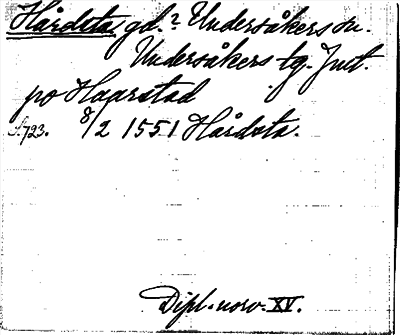 Hårdsta gd.? Undersåkers sn.
Undersåkers tg. Jmt.
po Haarstad
s. 723. 8/2 1551 Hårdsta.
Dipl. norv. XV.